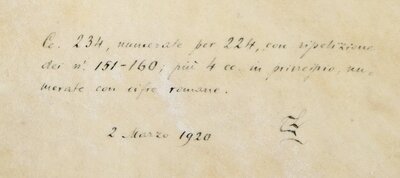 Cc. 234, numerate per 224, con ripetizione
dei nⁱ. 151-160; più 4 cc. in principio, nu-
merate con cifre romane.
2 Marzo 1920